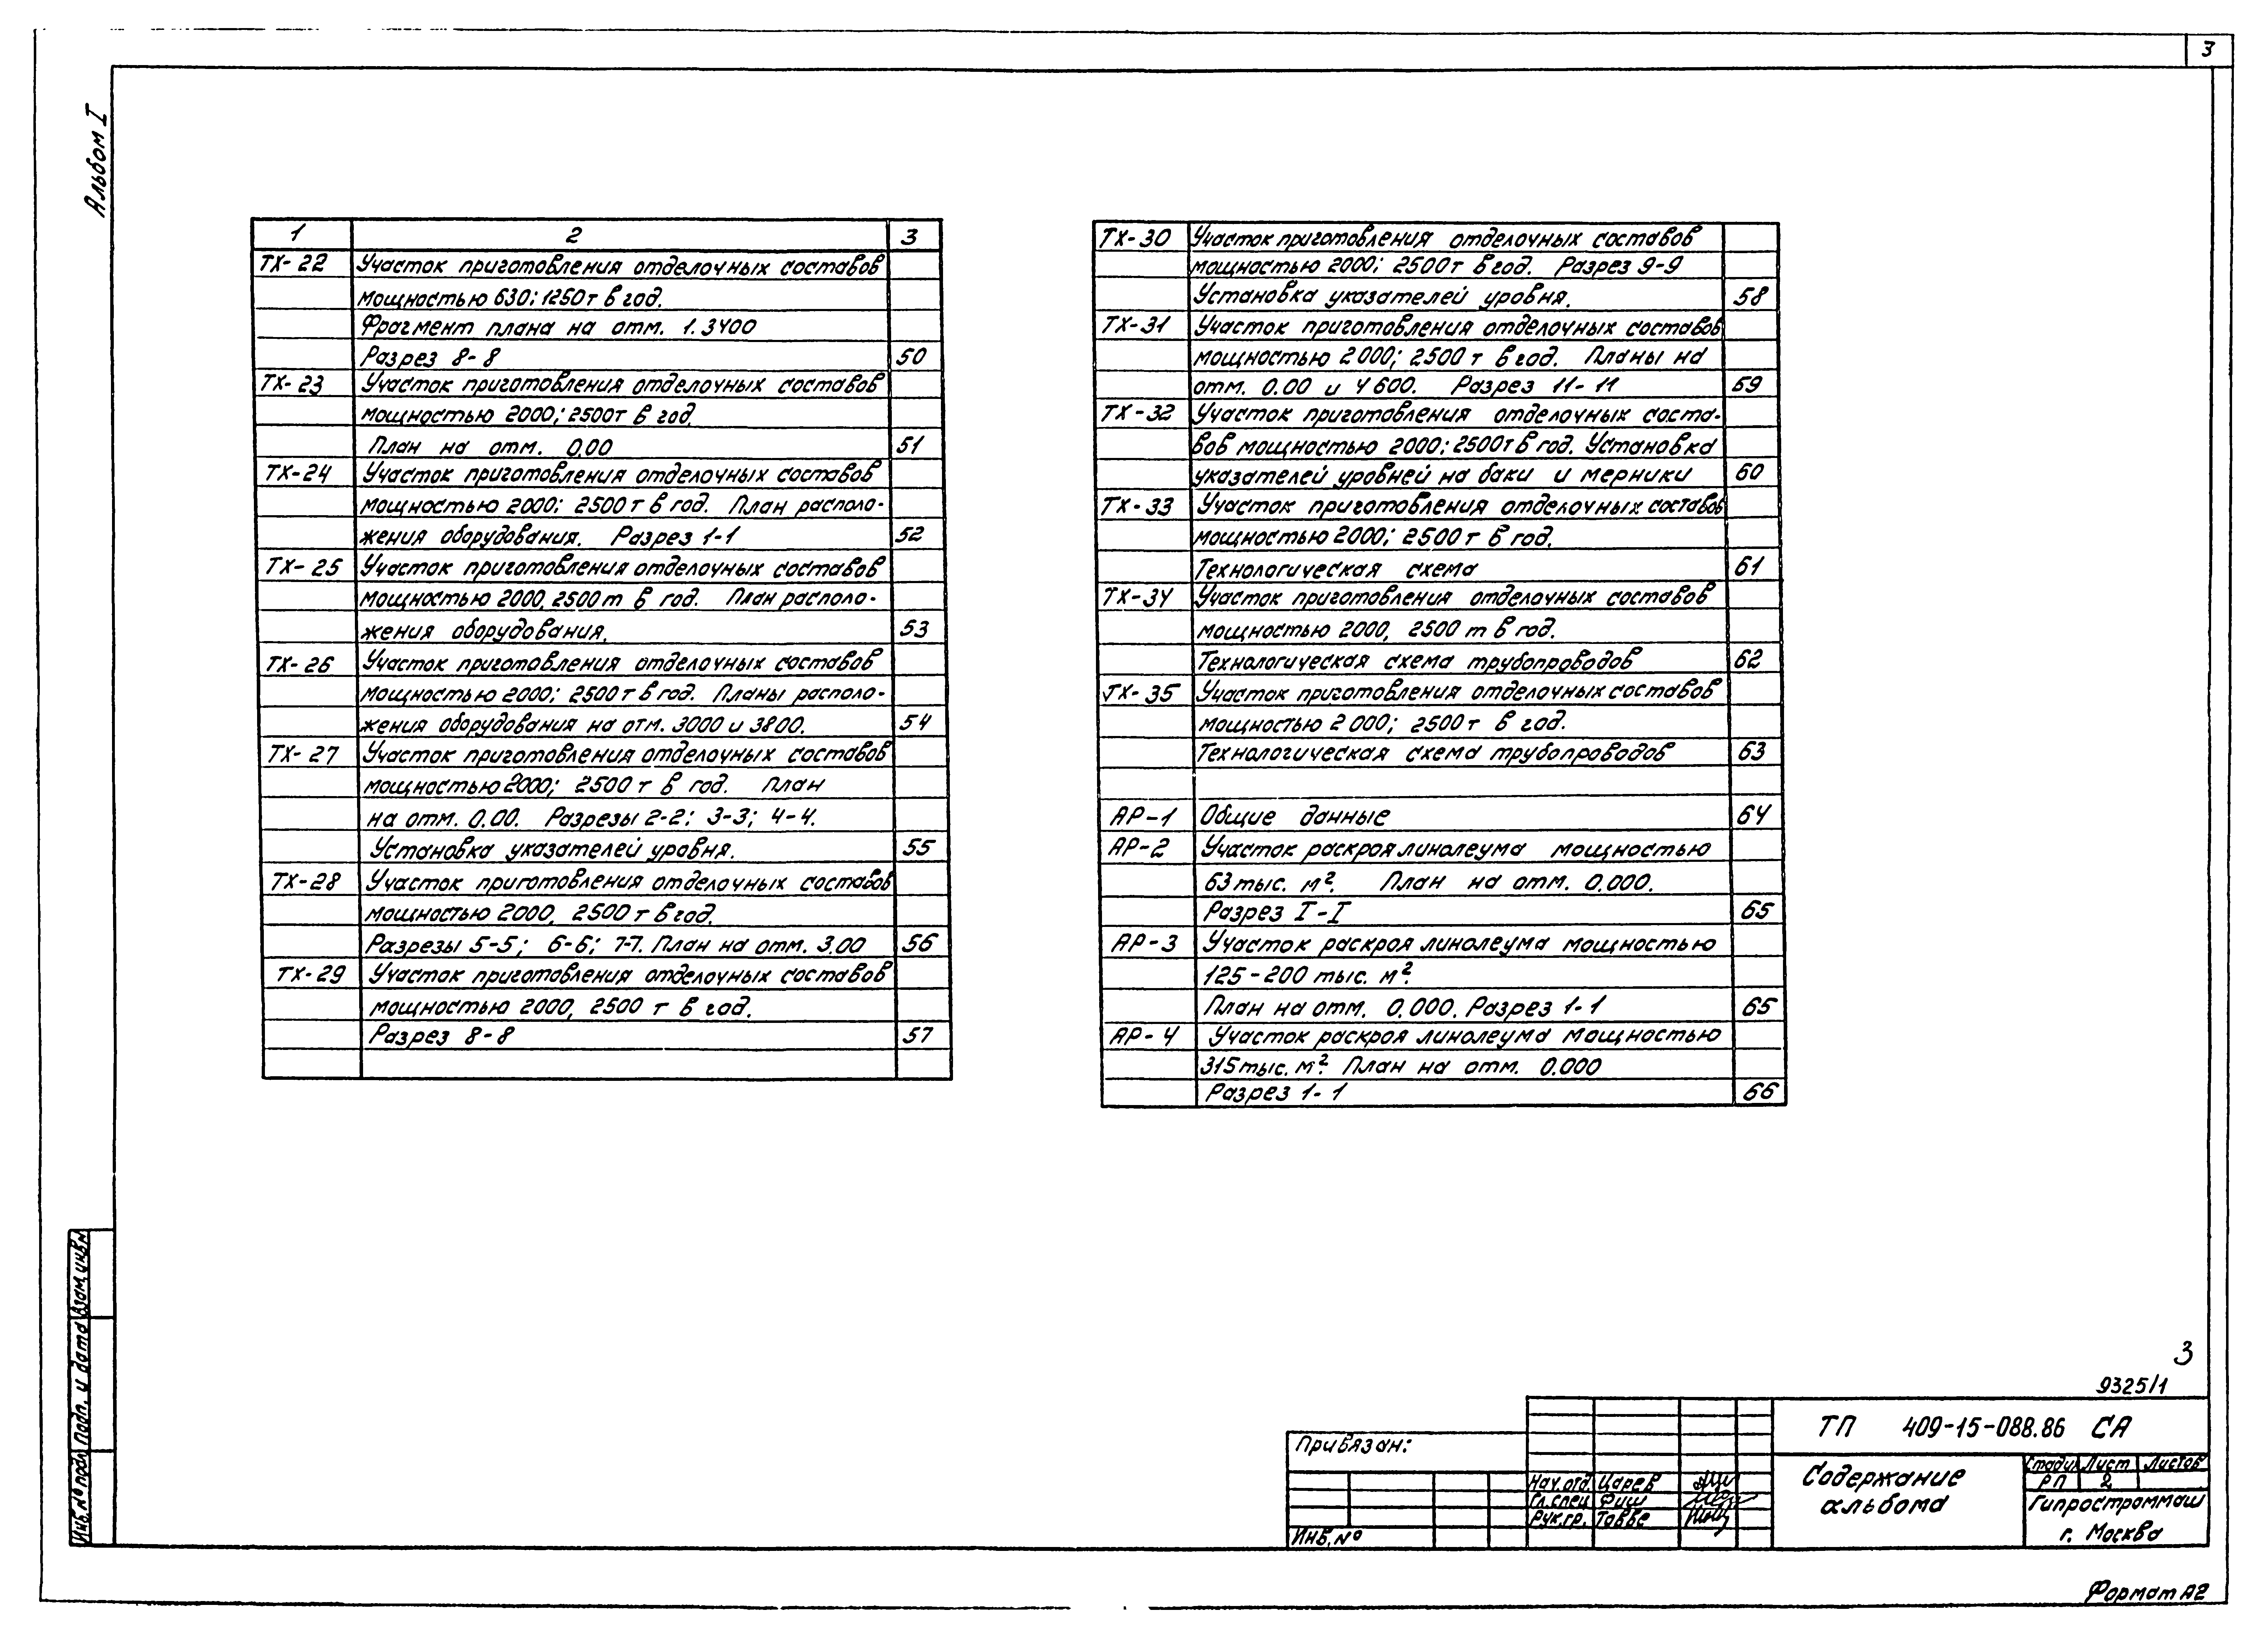 3
Альбом I
1 2 3
ТХ-22 Участок приготовления отделочных составов
мощностью 630; 1250т в год.
Фрагмент плана на отм. 1.3400
Разрез 8-8 50
ТХ-23 Участок приготовления отделочных составов
мощностью 2000; 2500т в год.
План на отм. 0.00 51
ТХ-24 Участок приготовления отделочных составов
мощностью 2000; 2500т в год. План располо-
жения оборудования. Разрез 1-1 52
ТХ-25 Участок приготовления отделочных составов
мощностью 2000, 2500т в год. План располо-
жения оборудования. 53
ТХ-26 Участок приготовления отделочных составов
мощностью 2000; 2500т в год. Планы располо-
жения оборудования на отм. 3000 и 3800. 54
ТХ-27 Участок приготовления отделочных составов
мощностью 2000; 2500т в год. План
на отм. 0.00. Разрезы 2-2; 3-3; 4-4.
Установка указателей уровня. 55
ТХ-28 Участок приготовления отделочных составов
мощностью 2000, 2500т в год.
Разрезы 5-5; 6-6; 7-7. План на отм. 3.00 56
ТХ-29 Участок приготовления отделочных составов
мощностью 2000, 2500 т в год.
Разрез 8-8 57
ТХ-30 Участок приготовления отделочных составов
мощностью 2000; 2500т в год. Разрез 9-9
Установка указателей уровня. 58
ТХ-31 Участок приготовления отделочных составов
мощностью 2000; 2500т в год. Планы на
отм. 0.00 и 4600. Разрез 11-11 59
ТХ-32 Участок приготовления отделочных соста-
вов мощностью 2000; 2500т в год. Установка
указателей уровней на баки и мерники 60
ТХ-33 Участок приготовления отделочных составов
мощностью 2000; 2500т в год.
Технологическая схема 61
ТХ-34 Участок приготовления отделочных составов
мощностью 2000, 2500 т в год.
Технологическая схема трубопроводов 62
ТХ-35 Участок приготовления отделочных составов
мощностью 2000; 2500т в год.
Технологическая схема трубопроводов 63
АР-1 Общие данные 64
АР-2 Участок раскроя линолеума мощностью
63тыс. м². План на отм. 0.000.
Разрез I-I 65
АР-3 Участок раскроя линолеума мощностью
125-200 тыс. м².
План на отм. 0.000. Разрез 1-1 65
АР-4 Участок раскроя линолеума мощностью
315тыс. м². План на отм. 0.000
Разрез 1-1 66
Взам. инв.№
Подп. и дата
Инв.№ подл.
3
9325/1
Привязан:
Инв.№
Нач.отд. Царев
Гл.спец. Фиш
Рук.гр. Товве
ТП 409-15-088.86 СА
Содержание
альбома
Стадия Лист Листов
РП 2
Гипростроммаш
г. Москва
Формат А2